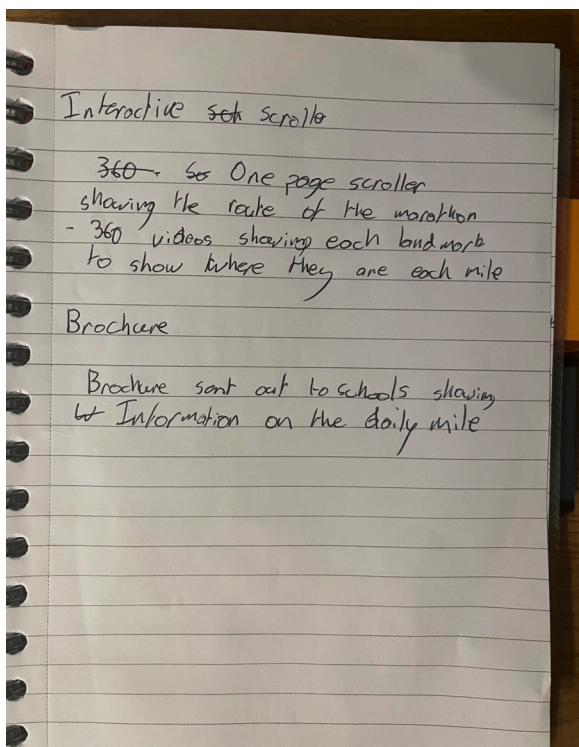 Interactive scroller
360. One page scroller
showing the route of the marathon
- 360 videos showing each landmark
to show where they are each mile
Brochure
Brochure sent out to schools showing
Information on the daily mile